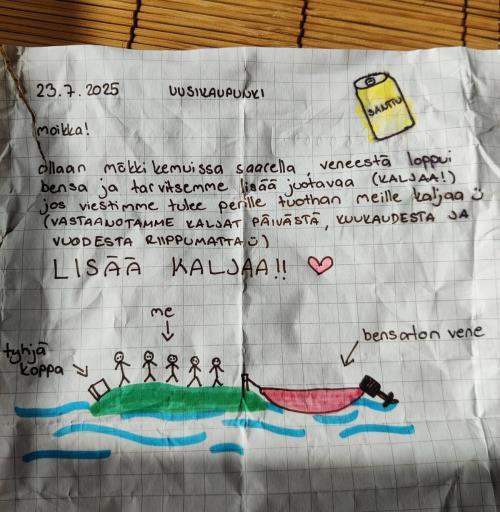 23.7.2025 UUSIKAUPUNKI
SANTTU
moikka!
ollaan mökkikemuissa saarella, veneestä loppui
bensa ja tarvitsemme lisää juotavaa (KALJAA!)
jos viestimme tulee perille tuothan meille kaljaa ☺
(VASTAANOTAMME KALJAT PÄIVÄSTÄ, KUUKAUDESTA JA
VUODESTA RIIPPUMATTA ☺)
LISÄÄ KALJAA!! ♡
me
bensaton vene
tyhjä
koppa